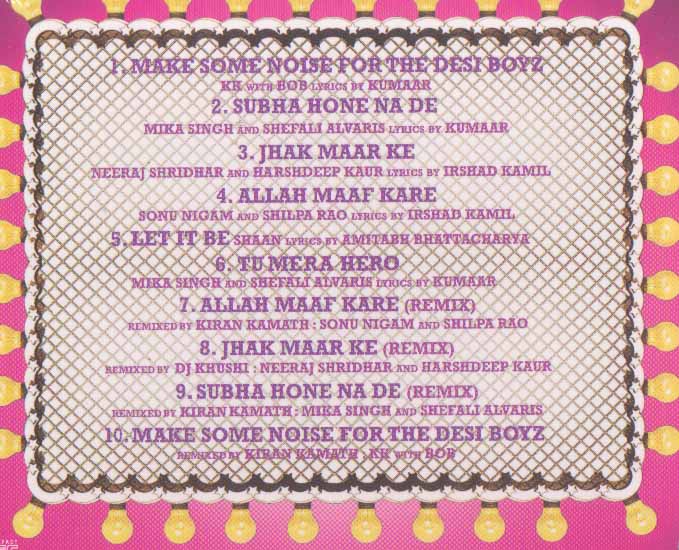 1. MAKE SOME NOISE FOR THE DESI BOYZ
KK WITH BOB LYRICS BY KUMAAR
2. SUBHA HONE NA DE
MIKA SINGH AND SHEFALI ALVARIS LYRICS BY KUMAAR
3. JHAK MAAR KE
NEERAJ SHRIDHAR AND HARSHDEEP KAUR LYRICS BY IRSHAD KAMIL
4. ALLAH MAAF KARE
SONU NIGAM AND SHILPA RAO LYRICS BY IRSHAD KAMIL
5. LET IT BE SHAAN LYRICS BY AMITABH BHATTACHARYA
6. TU MERA HERO
MIKA SINGH AND SHEFALI ALVARIS LYRICS BY KUMAAR
7. ALLAH MAAF KARE (REMIX)
REMIXED BY KIRAN KAMATH : SONU NIGAM AND SHILPA RAO
8. JHAK MAAR KE (REMIX)
REMIXED BY DJ KHUSHI : NEERAJ SHRIDHAR AND HARSHDEEP KAUR
9. SUBHA HONE NA DE (REMIX)
REMIXED BY KIRAN KAMATH : MIKA SINGH AND SHEFALI ALVARIS
10. MAKE SOME NOISE FOR THE DESI BOYZ
REMIXED BY KIRAN KAMATH : KK WITH BOB